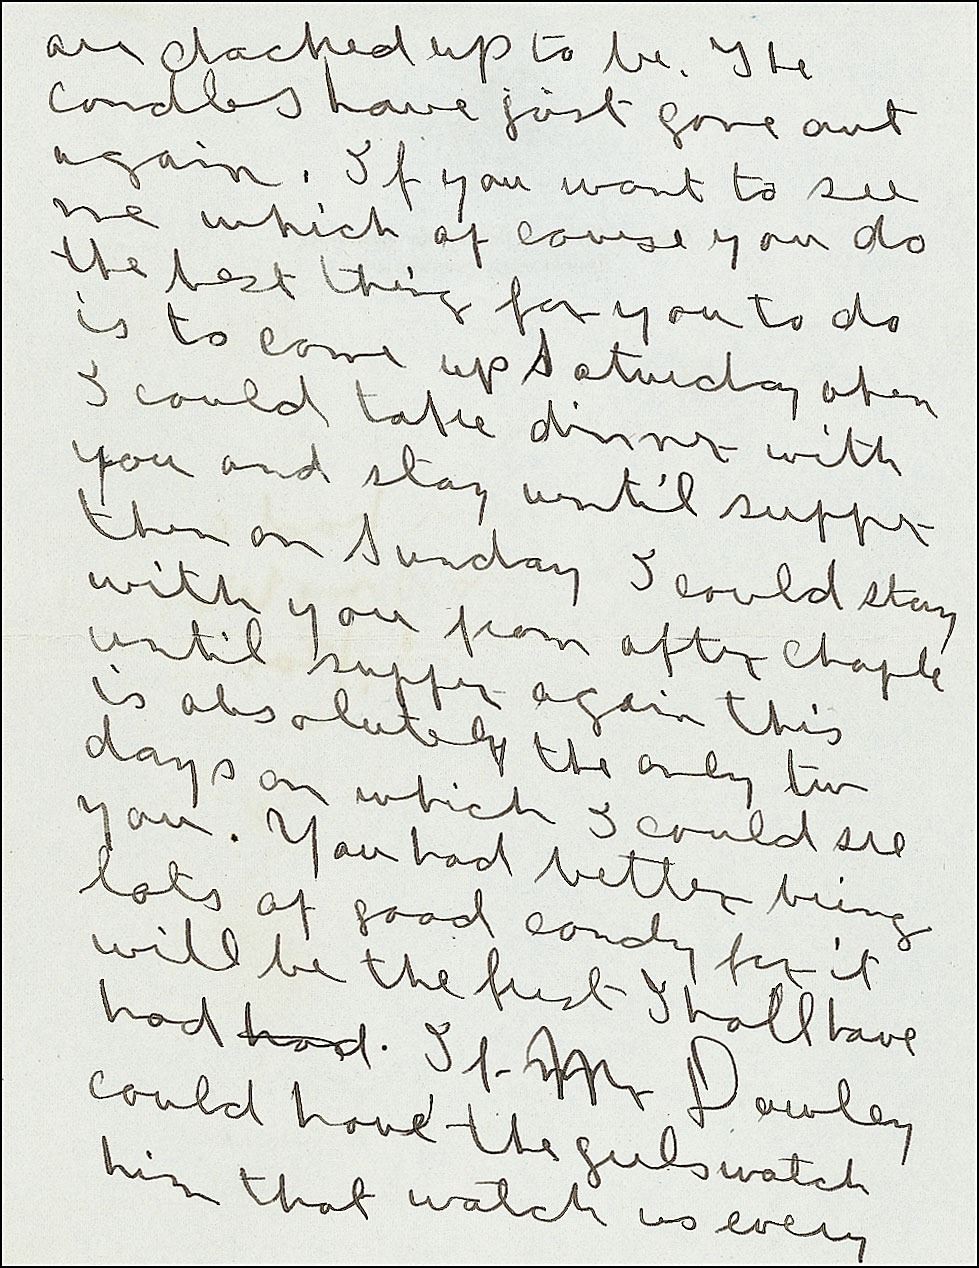 are clacked up to be. The
candles have just gone out
again. If you want to see
me which of course you do
the best thing for you to do
is to come up Saturday when
I could take dinner with
you and stay until supper
then on Sunday I could stay
with you from after chaple
until supper again this
is absolutely the only two
days on which I could see
you. You had better bring
lots of good candy for it
will be the first I shall have
had had. If Mr Dewley
could have the girls watch
him that watch us every